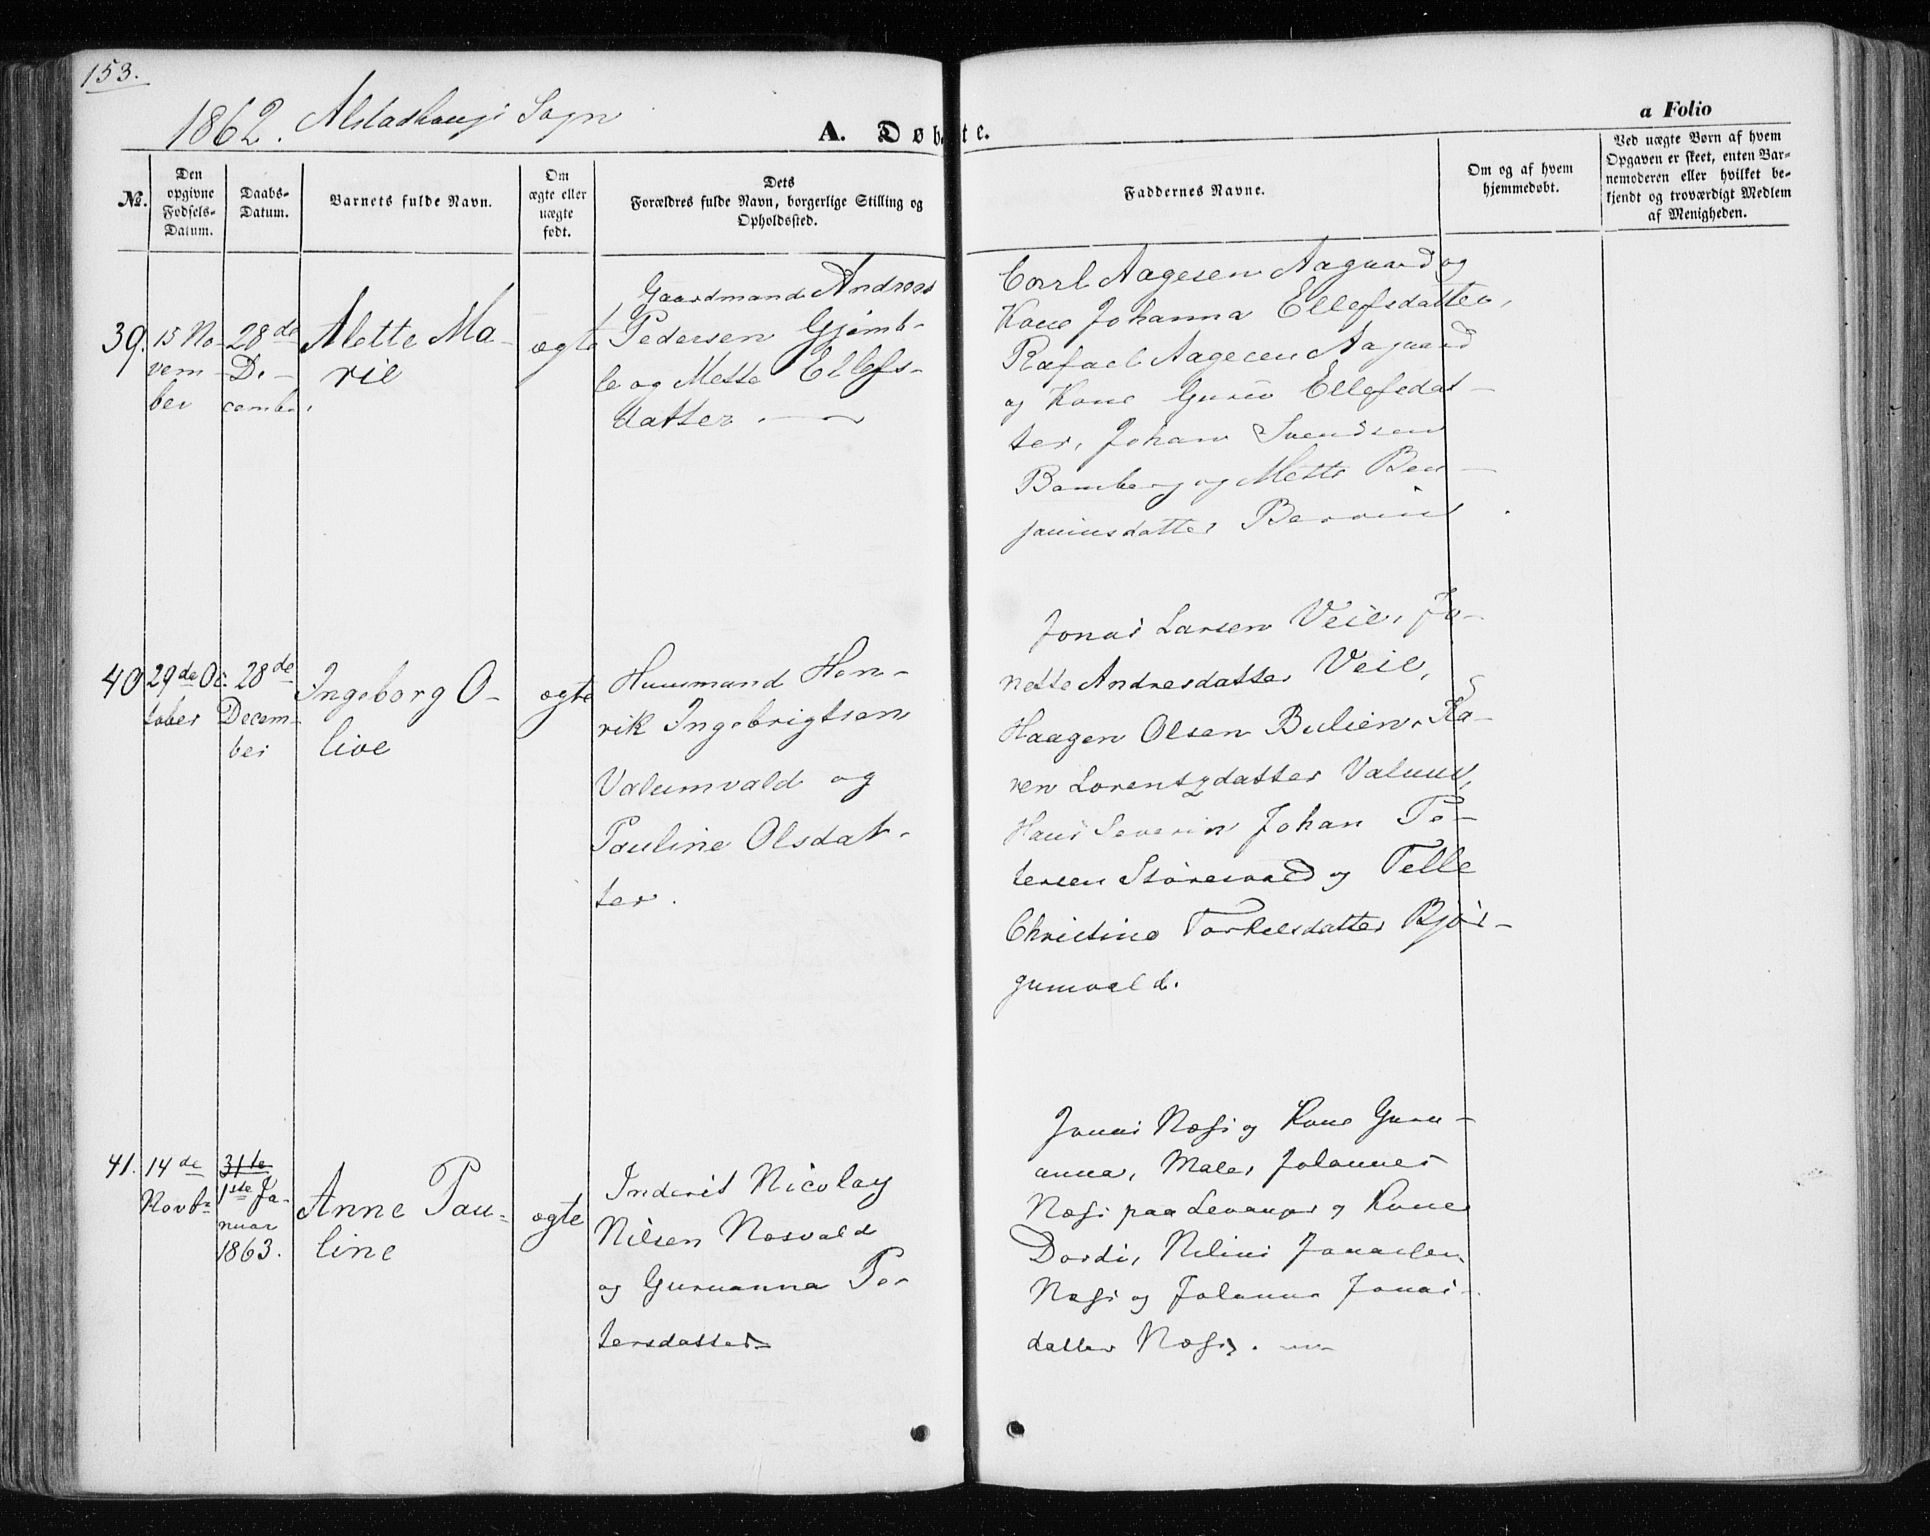 153.
1862. Alstadhaugs Sogn
A. Døbte.
a Folio
No.
Den opgivne Fødsels-Datum.
Daabs-Datum.
Barnets fulde Navn.
Om ægte eller uægte født.
Dets Forældres fulde Navn, borgerlige Stilling og Opholdssted.
Faddernes Navne.
Om og af hvem hjemmedøbt.
Ved uægte Børn af hvem Opgaven er skeet, enten Barnemoderen eller hvilket bekjendt og troværdigt Medlem af Menigheden.
39.
15 No-
vem-
ber
28de
De-
cember
Alette Ma-
rie
ægte
Gaardmand Andreas
Pedersen Gjemb-
le og Mette Ellefs-
datter.
Carl Aagesen Aagaard og
Kone Johanna Ellefsdatter,
Rafael Aagesen Aagaard
og Kone Guru Ellefsdat-
ter, Johan Svendsen
Bamberg og Mette Ben-
jaminsdatter
40
29de Oc-
tober
28de
Decem-
ber
Ingeborg O-
live
ægte
Huusmand Hen-
rik Ingebrigtsen
Valumvald og
Pauline Olsdat-
ter.
Jonas Larsen Veie, Ja-
nette Andresdatter Veie,
Haagen Olsen Bulien, Ka-
ren Lorentzdatter Valum,
Hans Severin Johan Pe-
tersen og Pelle
Christine Torkelsdatter Bjør-
gumvald.
41.
14de
Novbr
31te
1ste Ja-
nuar
1863.
Anne Pau-
line
ægte
Inderst Nicolay
Nilsen Nesvald
og Guruanna Pe-
tersdatter
Jonas Næss og Kone Guru-
anna, Maler Johannes
Næss paa Levanger og Kone
Dordi, Nilius Jonassen
Næss og Johanna Jonas-
datter Næss.